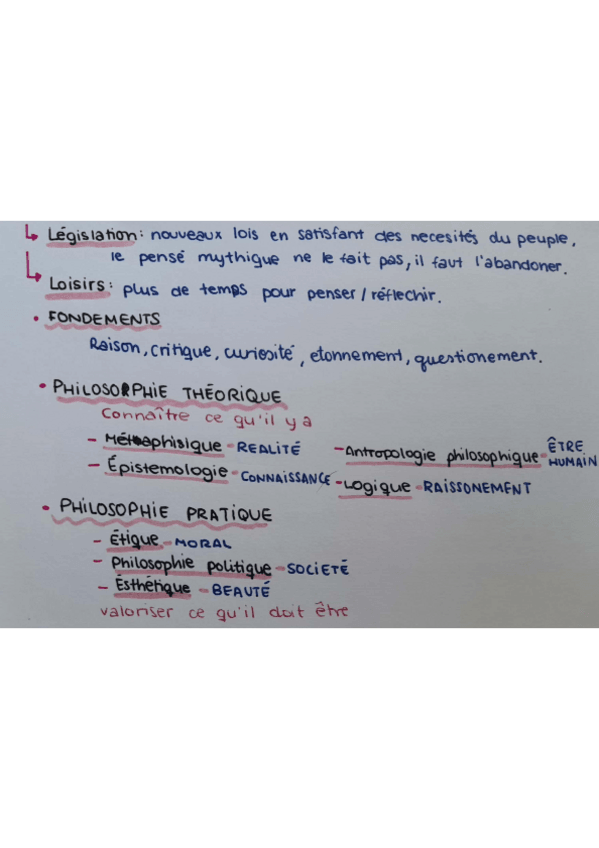 ↳ Législation: nouveaux lois en satisfant des necesités du peuple,
le pensé mythique ne le fait pas, il faut l'abandoner.
↳ Loisirs: plus de temps pour penser/réflechir.
• FONDEMENTS
Raison, critique, curiosité, etonnement, questionement.
• PHILOSOPHIE THÉORIQUE
Connaître ce qu'il y a
- Métaphisique - REALITÉ
- Antropologie philosophique - ÊTRE HUMAIN
- Épistemologie - CONNAISSANCE
- Logique - RAISSONEMENT
• PHILOSOPHIE PRATIQUE
- Étique - MORAL
- Philosophie politique - SOCIETÉ
- Ésthétique - BEAUTÉ
valoriser ce qu'il doit être